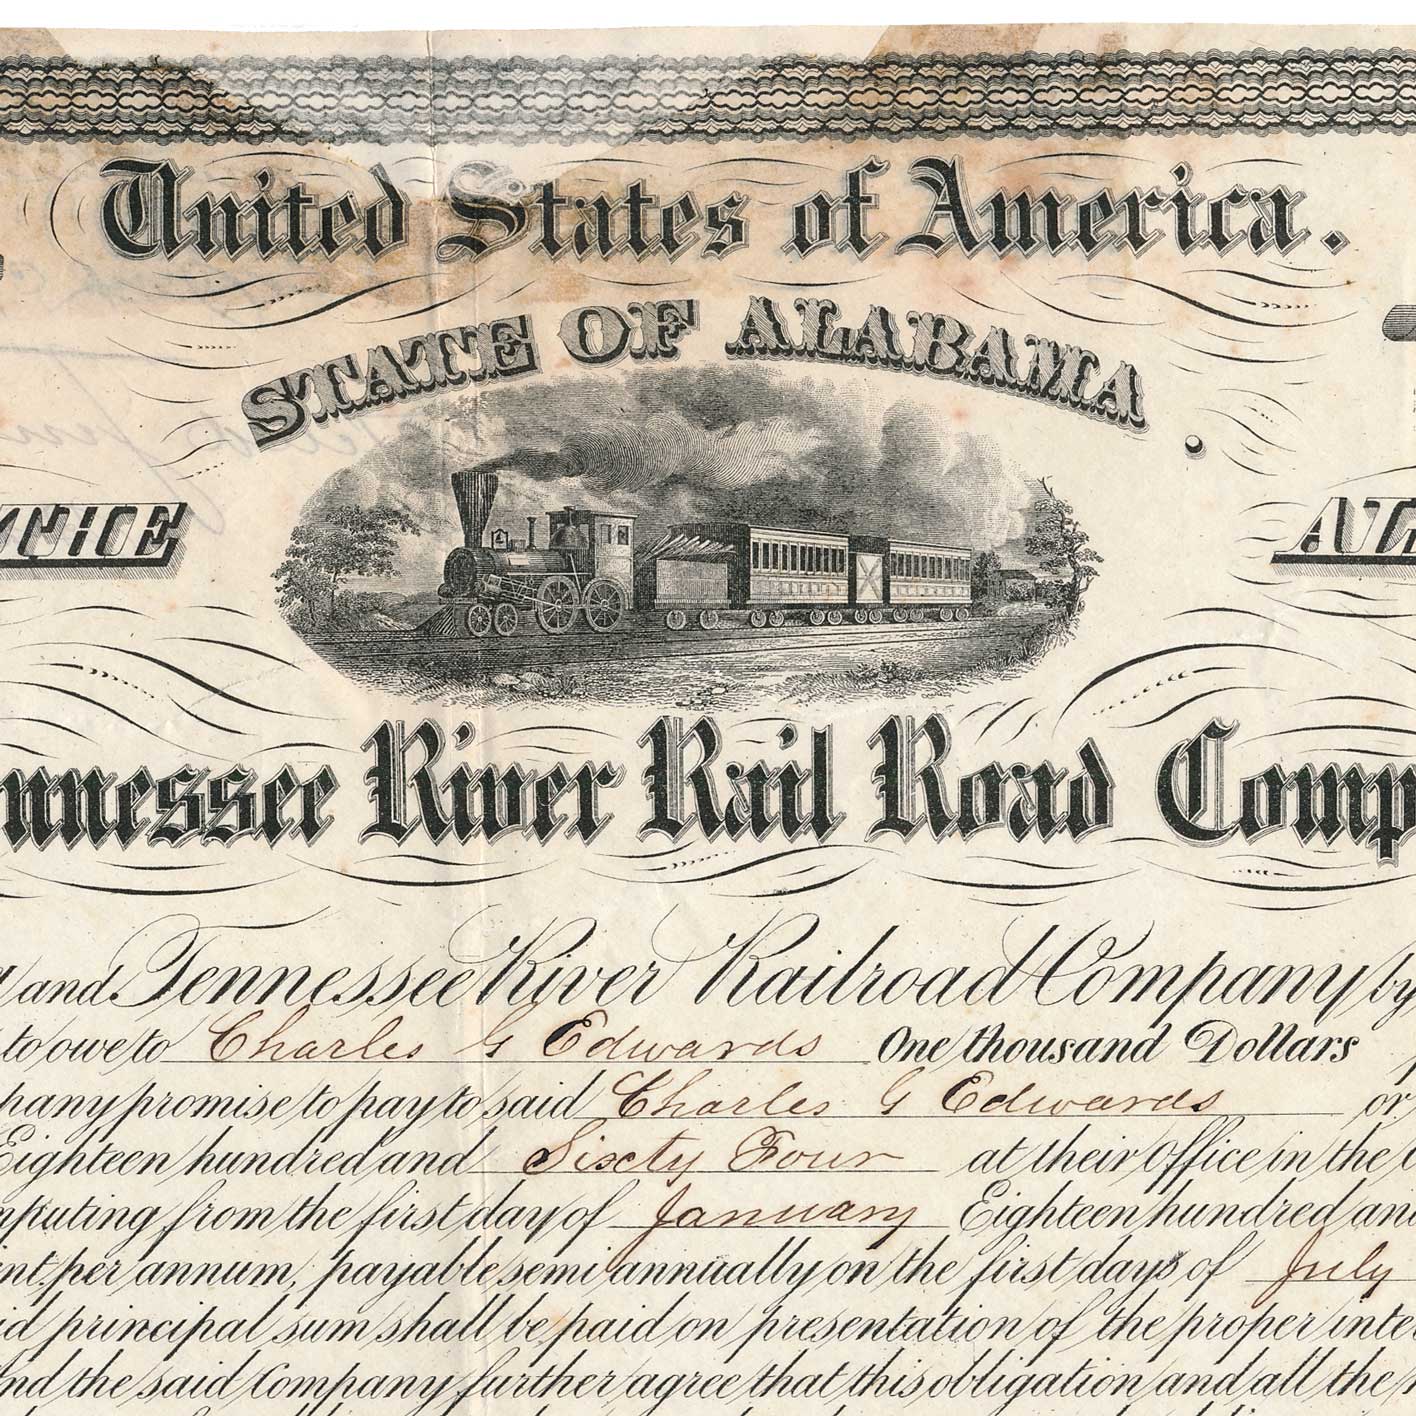 United States of America.
STATE OF ALABAMA.
THE
River Rail Road
and Tennessee River Railroad Company by
to owe to Charles G Edwards One thousand Dollars
promise to pay to said Charles G Edwards or
Eighteen hundred and Sixty Four at their Office in the
from the first day of January Eighteen hundred
per annum, payable semi annually on the first days of July
principal sum shall be paid on presentation of the proper
the said Company further agree that this obligation and all the